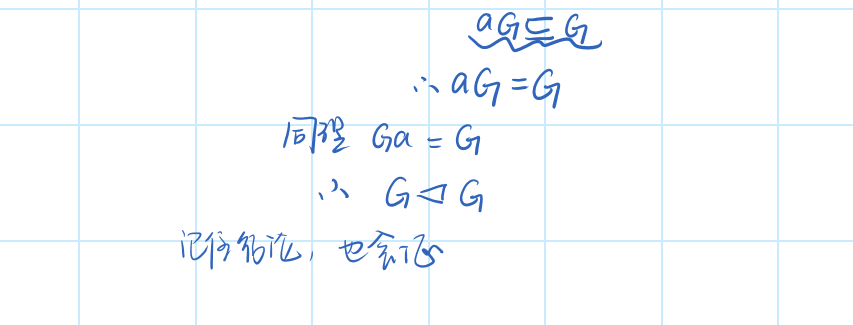 aG⊆G
∴ aG=G
同理 Ga=G
∴ G◁G
记住结论，也会证